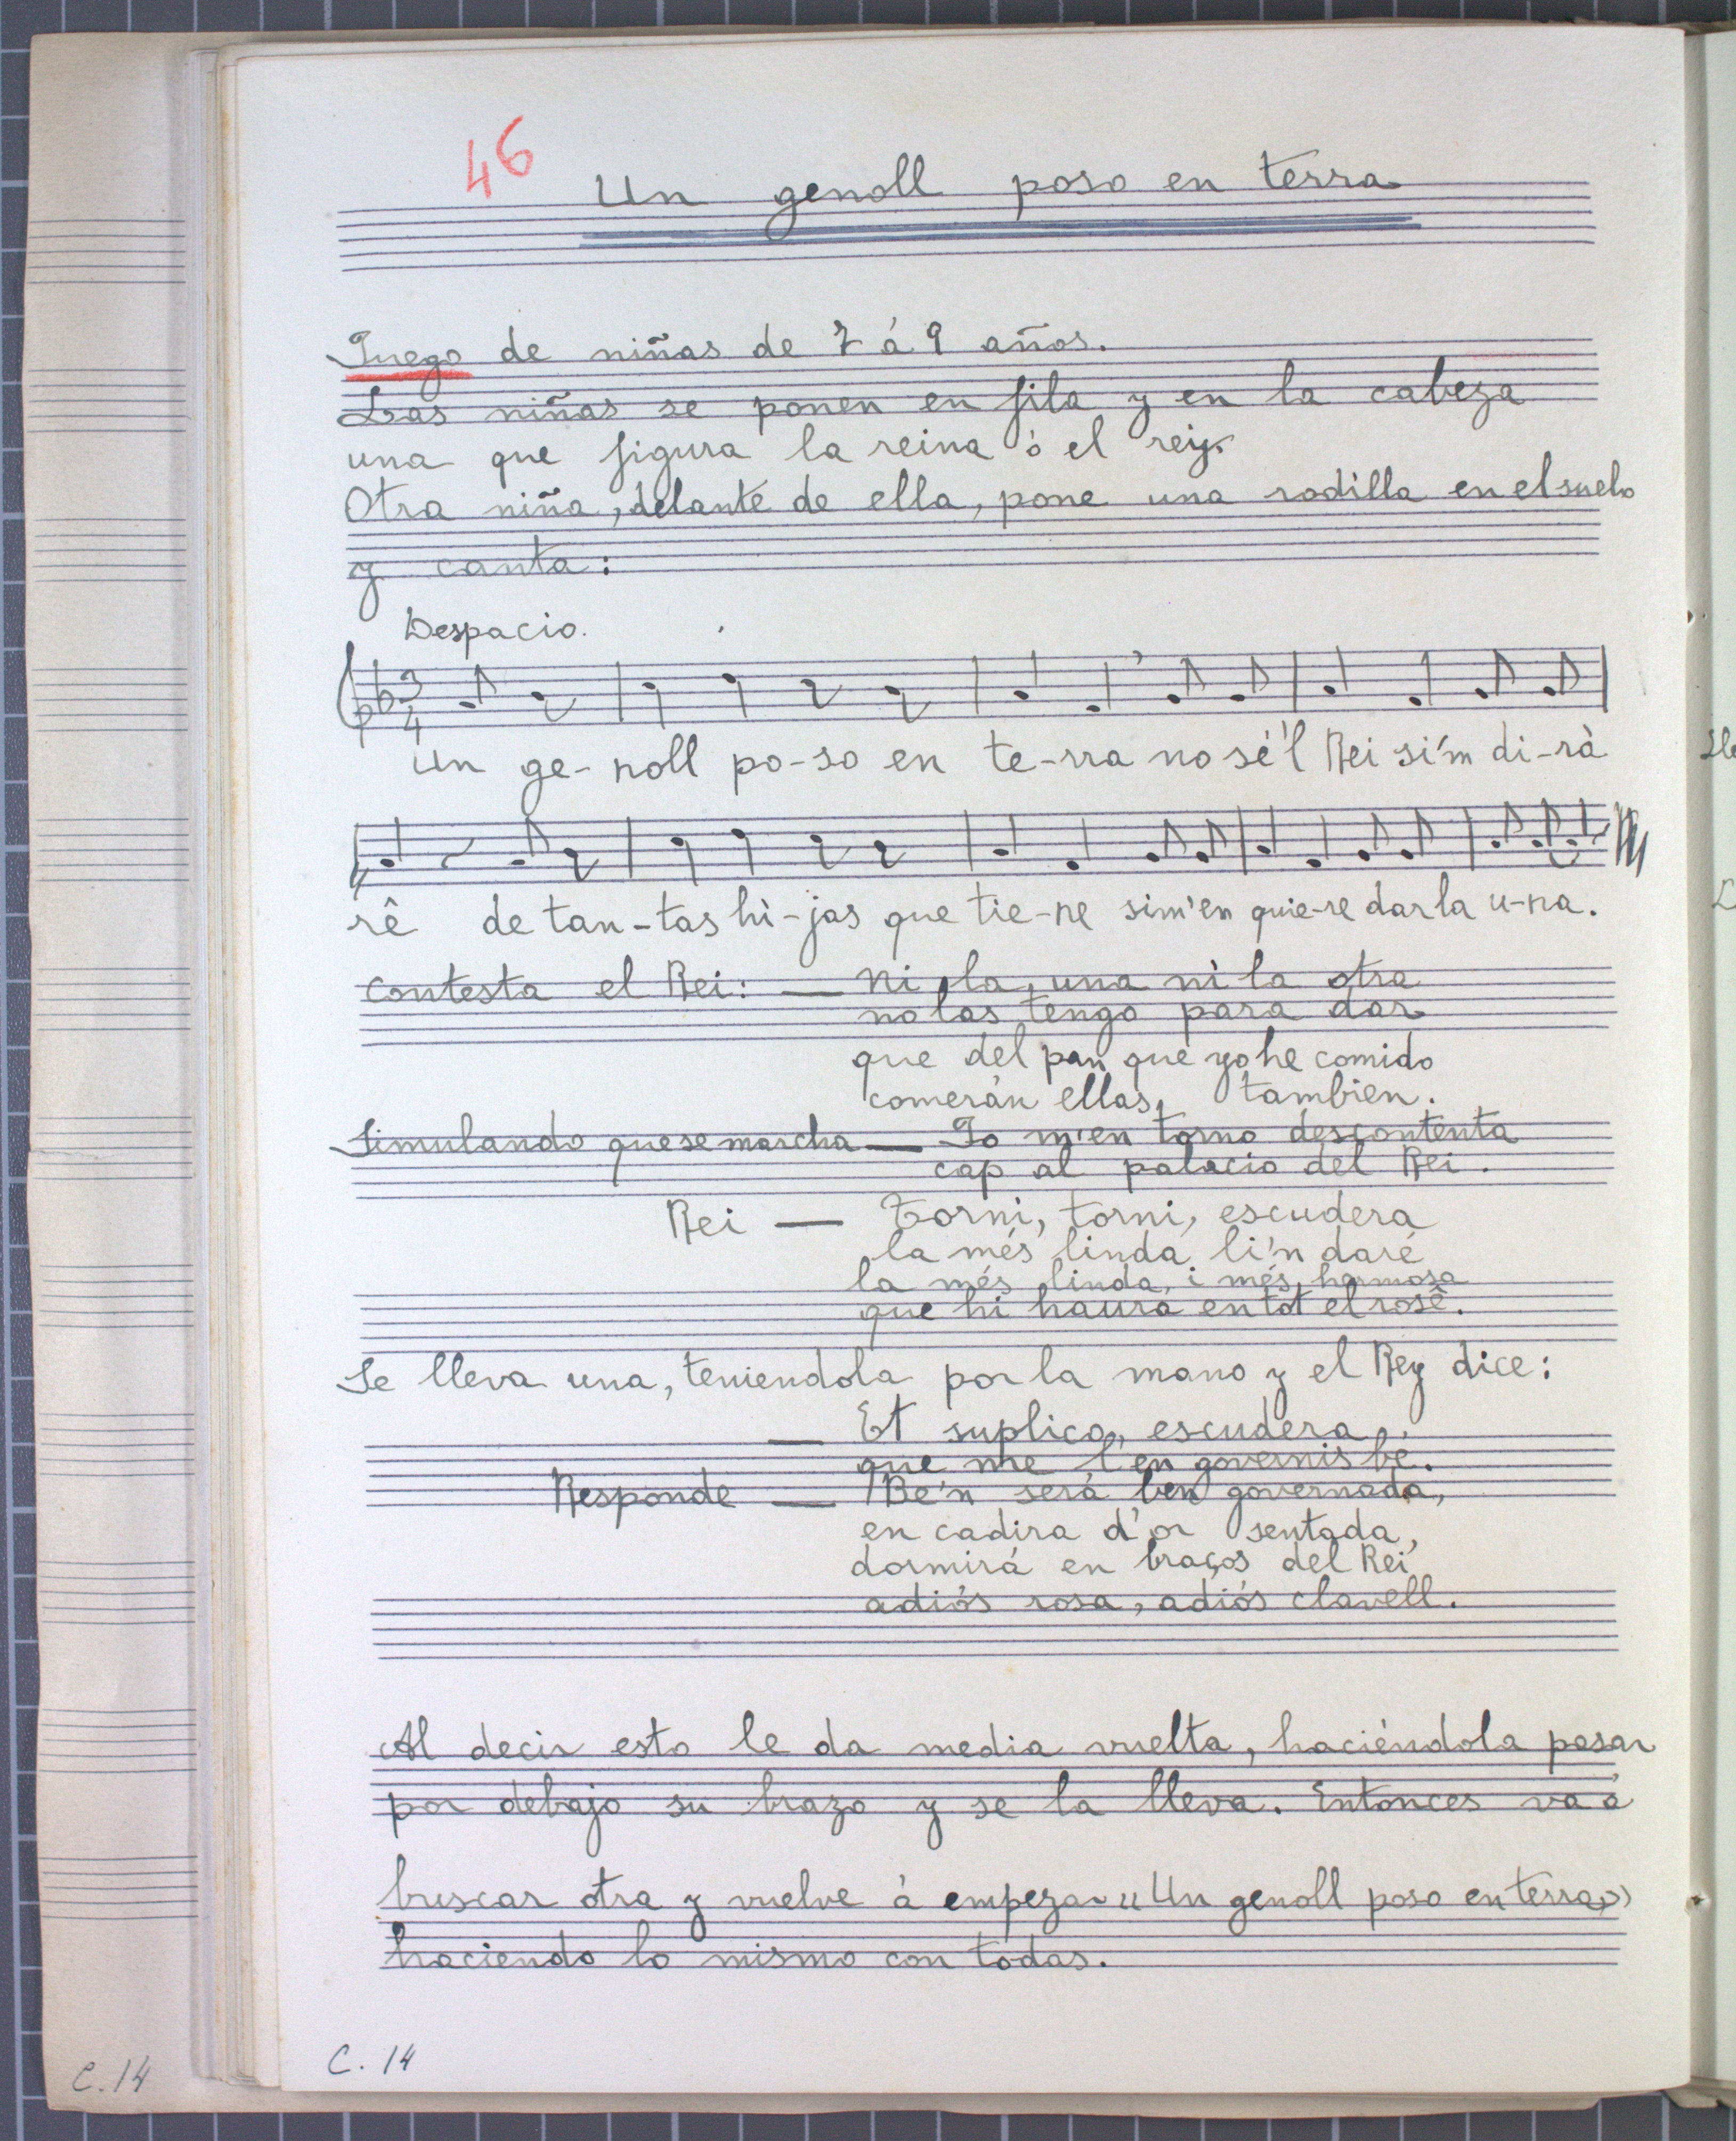 46
Un genoll poso en terra
Juego de niñas de 7 á 9 años.
Las niñas se ponen en fila y en la cabeza
una que figura la reina ó el rey.
Otra niña, delante de ella, pone una rodilla en el suelo
y canta:
Despacio.
3
4
Un ge-noll po-so en te-rra no sé'l Rei si'm di-rà
rê de tan-tas hi-jas que tie-ne sim'en quie-re dar la u-na.
Contesta el Rei: — Ni la una ni la otra
no las tengo para dar
que del pan que yo he comido
comerán ellas, tambien.
Simulando que se marcha — Jo m'en torno descontenta
cap al palacio del Rei.
Rei — Torni, torni, escudera
la més linda li'n daré
la més linda i més hermosa
que hi haurà en tot el rosê.
Se lleva una, teniendola por la mano y el Rey dice:
— Et suplico, escudera
que me l'en governis bé.
Responde — Be'n será ben governada,
en cadira d'or sentada,
dormirá en braços del Rei
adiós rosa, adiós clavell.
Al decir esto le da media vuelta, haciéndola pasar
por debajo su brazo y se la lleva. Entonces va á
buscar otra y vuelve à empezar "Un genoll poso en terra"
haciendo lo mismo con todas.
C. 14
C. 14